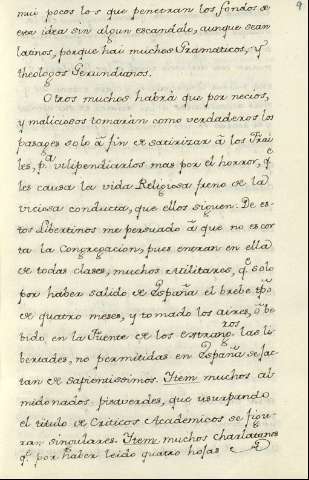 9
mui pocos los que penetran los fondos de
esta idea sin algun escandalo, aunque sean
latinos, porque hai muchos Gramaticos, y
theologos Gerundianos.
Otros muchos habrà que por necios,
y maliciosos tomaràn como verdaderos los
pasages solo à fin de satirizar à los Frai-
les, pa vilipendiarlos mas por el horror, qe
les causa la vida Religiosa freno de la
viciosa conducta, que ellos siguen: De es-
tos Libertinos me persuado à que no es cor-
ta la Congregacion, pues entran en ella
de todas clases, muchos Militares, qe solo
por haber salido de España el brebe tpõ
de quatro meses, y tomado los aires, ò be-
bido en la Fuente de los estrangros las li-
bertades, no permitidas en España se jac-
tan de sapientissimos. Item muchos al-
midonados pisaverdes, que usurpando
el titulo de Criticos Academicos se figu-
ran singulares. Item muchos charlatanes
qe por haber leido quatro hojas de